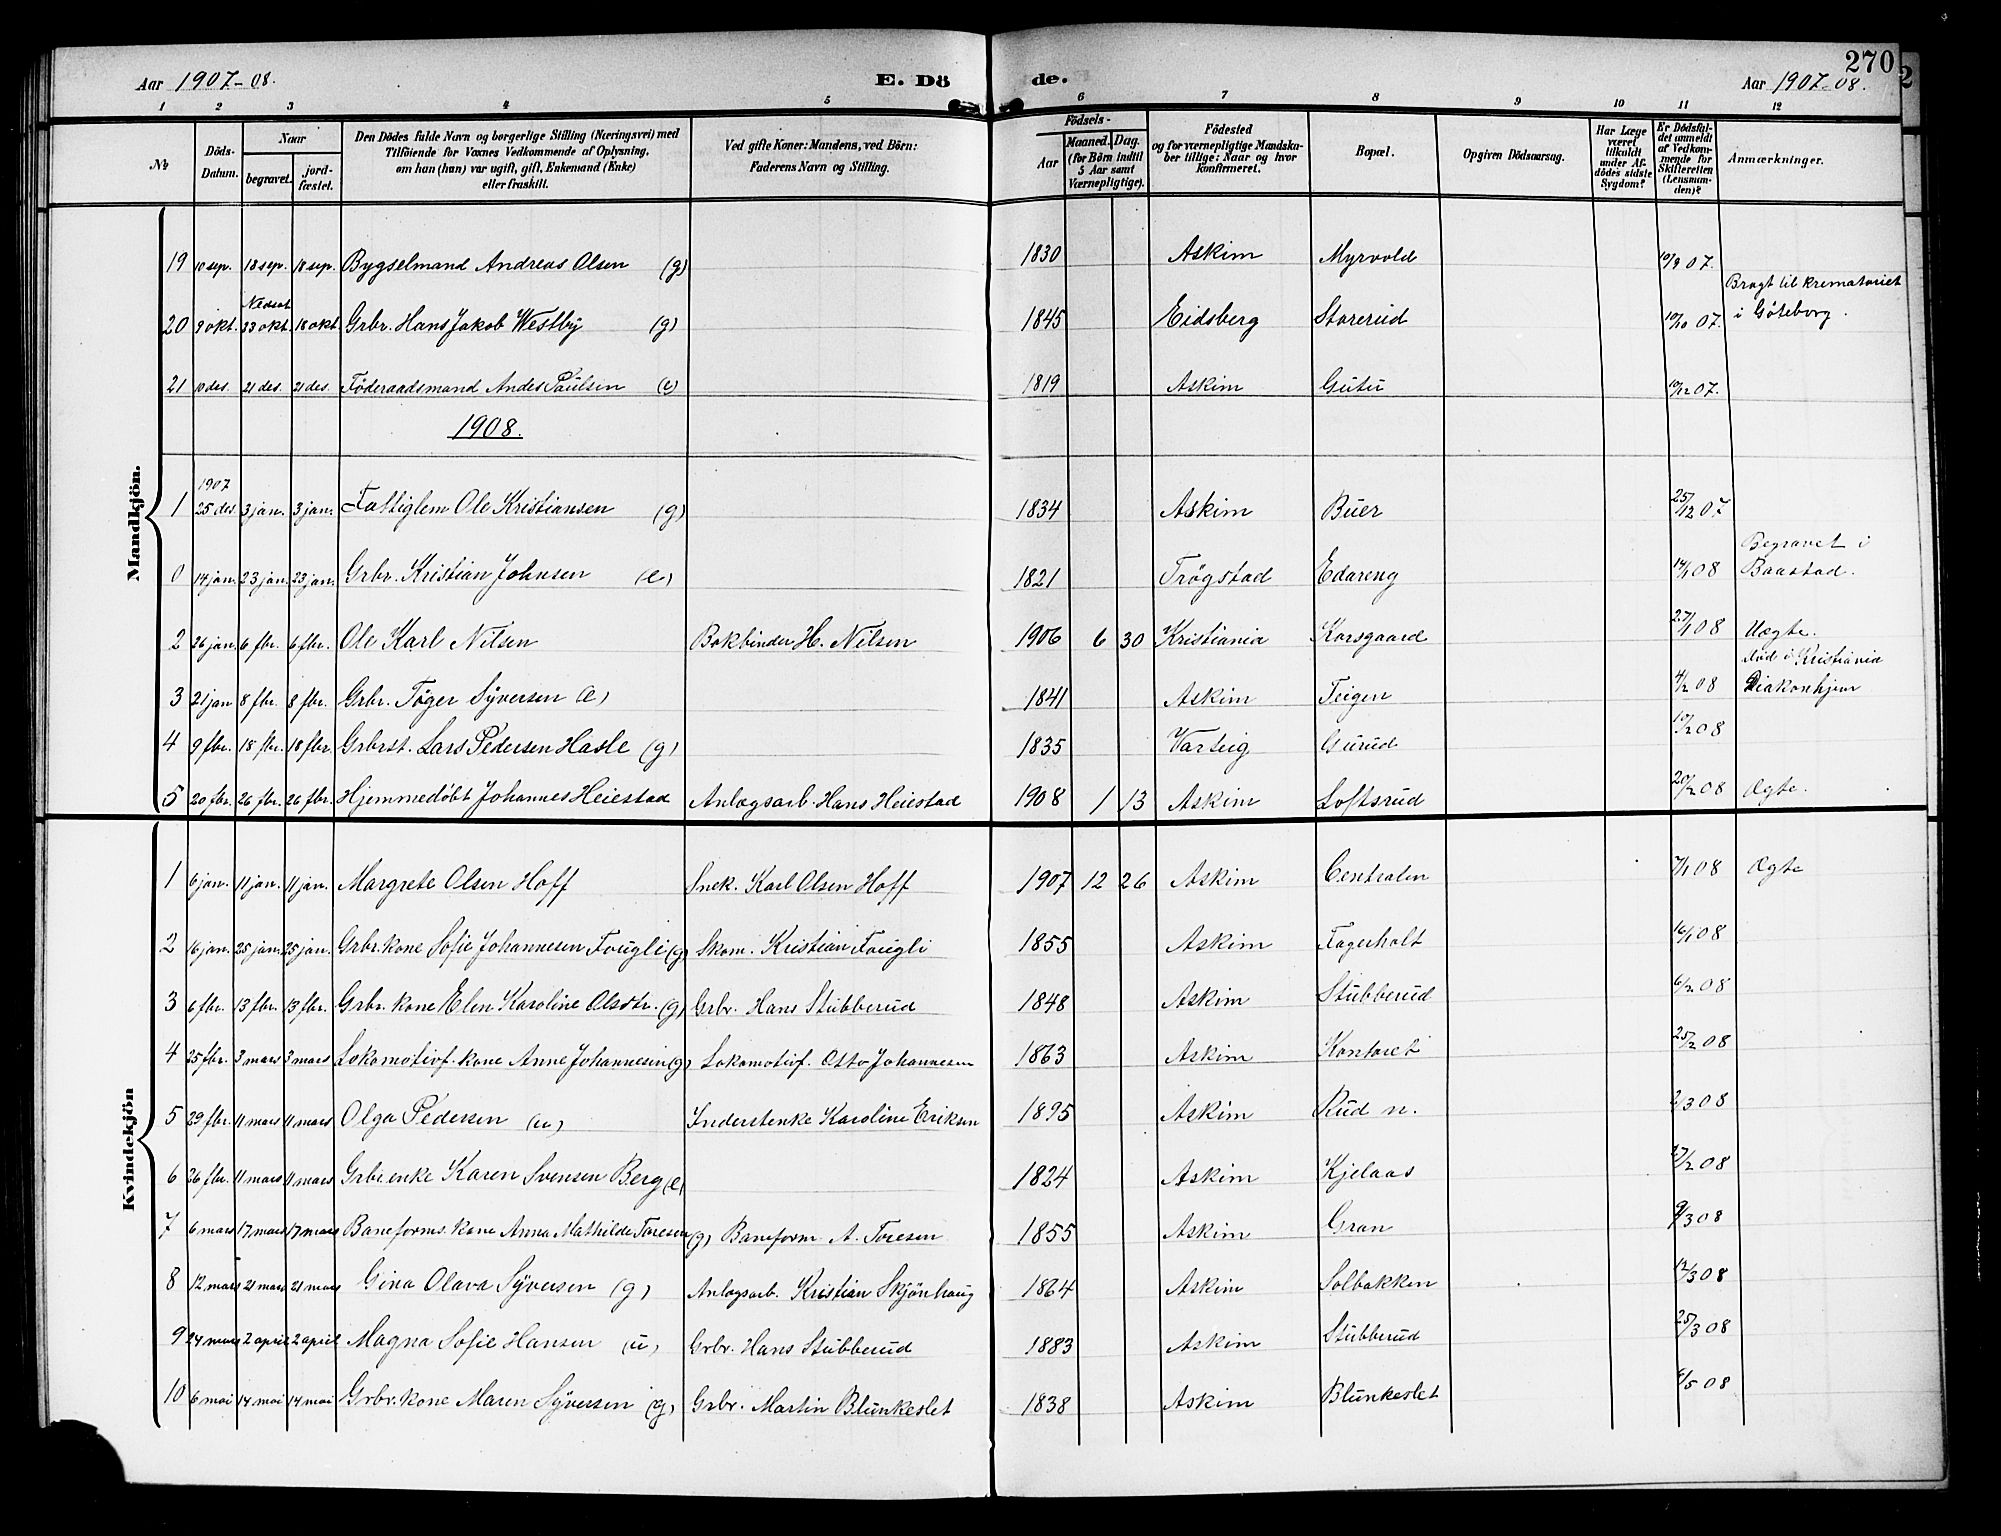 270
Aar 1907-08. E. Dö de. Aar 1907-08.
1 2 3 4 5 6 7 8 9 10 11 12
№ Döds-Datum. Naar begravet. jord-fæstet. Den Dödes fulde Navn og borgerlige Stilling (Næringsvei) med Tilföiende for Voxnes Vedkommende af Oplysning, om han (hun) var ugift, gift, Enkemand (Enke) eller fraskilt. Ved gifte Koner: Mandens, ved Börn: Faderens Navn og Stilling. Födsels- Aar Maaned. Dag. (for Börn indtil 5 Aar samt Værnepligtige). Födested og for værnepligtige Mandskaber tillige: Naar og hvor konfirmeret. Bopæl. Opgiven Dödsaarsag. Har Læge været tilkaldt under Afdödes sidste Sygdom? Er Dödsfaldet anmeldt af Vedkommende for Skifteretten (Lensmanden)? Anmærkninger.
Mandkjön.
19 10 sep. 18 sep. 18 sep. Bygselmand Andreas Olsen (g) 1830 Askim Myrvold 10/9 07.
20 9 okt. Nedsat 23 okt. 18 okt. Grbr. Hans Jakob Westby (g) 1845 Eidsberg Storerud 10/10 07. Bragt til krematoriet i Göteborg.
21 10 des. 21 des. 21 des. Föderaadsmand Andes Paulsen (e) 1819 Askim Gutu 10/12 07.
1908.
1 1907 25 des. 3 jan. 3 jan. Fattiglem Ole Kristiansen (g) 1834 Askim Buer 25/12 07
0 14 jan. 23 jan. 23 jan. Grbr. Kristian Johnsen (e) 1821 Trögstad Edareng 14/1 08 Begravet i Baastad.
2 26 jan. 6 fbr. 6 fbr. Ole Karl Nilsen Bokbinder H. Nilsen 1906 6 30 Kristiania Korsgaard 27/1 08 Uægte.
3 21 jan 8 fbr. 8 fbr. Grbr. Töger Syversen (e) 1841 Askim Teigen 4/2 08 död i Kristiania Diakonhjem
4 9 fbr. 18 fbr. 18 fbr. Grbrst. Lars Pedersen Hasle (g) 1835 Varteig Gurud 10/2 08
5 20 fbr. 26 fbr. 26 fbr. Hjemmedöbt Johannes Heiestad Anlægsarb. Hans Heiestad 1908 1 13 Askim Loftsrud 20/2 08 Ægte.
Kvindekjön
1 6 jan. 11 jan. 11 jan. Margrete Olsen Hoff Snek. Karl Olsen Hoff 1907 12 26 Askim Centralen 7/1 08 Ægte
2 16 jan. 25 jan. 25 jan. Grbr. kone Sofie Johannesen Fougli (g) Skom. Kristian Fougli 1855 Askim Fagerholt 16/1 08
3 6 fbr. 13 fbr. 13 fbr. Grbr. kone Elen Karoline Olsdtr. (g) Grbr. Hans Stubberud 1848 Askim Stubberud 6/2 08
4 25 fbr. 3 mars 3 mars Lokomotivf. kone Anne Johannesen (g) Lokomotivf. Otto Johannesen 1863 Askim Kontoret 25/2 08
5 29 fbr. 11 mars 11 mars Olga Pedersen (u) Inderstenke Karoline Eriksen 1895 Askim Rud n. 2/3 08
6 26 fbr. 11 mars 11 mars Grbr. enke Karen Svensen Berg (e) 1824 Askim Kjelaas 27/2 08
7 6 mars 17 mars 17 mars Baneforms. kone Anna Mathilde Toresen (g) Baneform A. Toresen 1855 Askim Gran 9/3 08
8 12 mars 21 mars 21 mars Gina Olava Syversen (g) Anlægsarb. Kristian Skjönhaug 1864 Askim Solbakken 12/3 08
9 24 mars 2 april 2 april Magna Sofie Hansen (u) Grbr. Hans Stubberud 1883 Askim Stubberud 25/3 08
10 6 mai 14 mai 14 mai Grbr. kone Maren Syversen (g) Grbr. Martin Blunkeslet 1838 Askim Blunkeslet 6/5 08